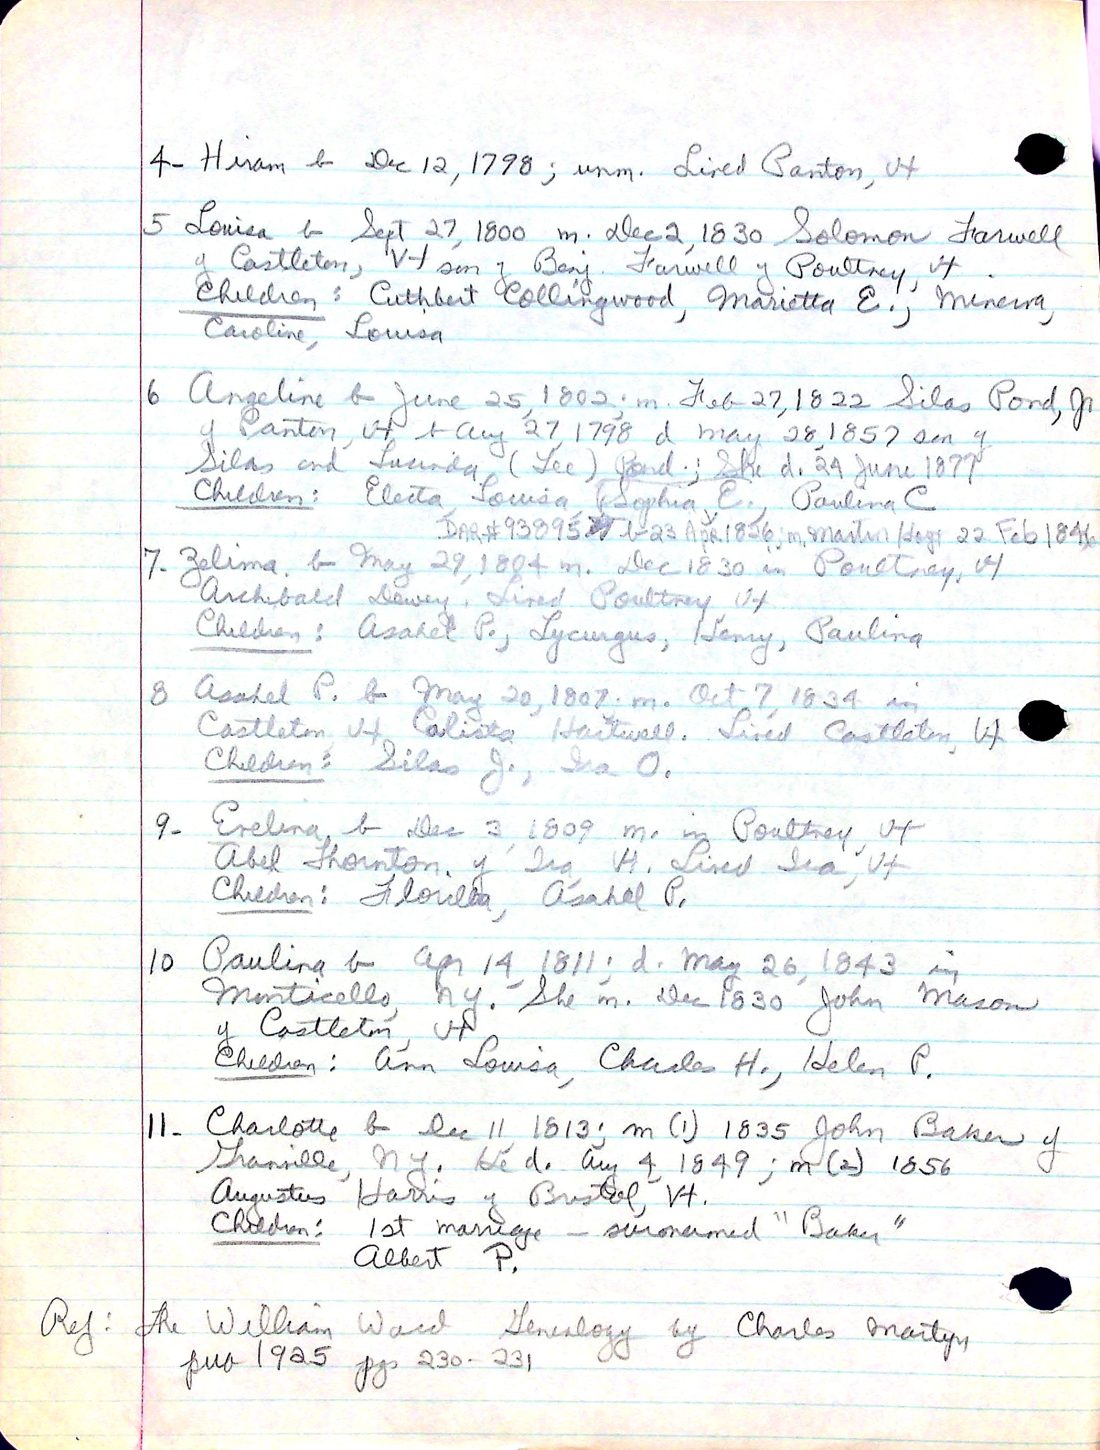 4- Hiram b Dec 12, 1798; unm. Lived Panton, Vt
5 Louisa b Sept 27, 1800 m. Dec 2, 1830 Solomon Farwell
of Castleton, Vt son of Benj. Farwell of Poultney, Vt.
Children: Cuthbert Collingwood, Marietta E., Minerva,
Caroline, Louisa
6 Angeline b June 25, 1802; m. Feb 27, 1822 Silas Pond, Jr
of Panton, Vt b Aug 27, 1798 d May 28, 1857 son of
Silas and Lucinda (Lee) Pond.; She d. 24 June 1877
Children: Electa, Louisa, Sophia E., Paulina C
DAR# 93895 b 23 Apr 1826; m. Martin 22 Feb 1846
7. Zelima. b May 29, 1804 m. Dec 1830 in Poultney, Vt
Archibald Dewey. Lived Poultney Vt
Children: Asahel P., Lycurgus, Henry, Paulina
8 Asahel P. b May 20, 1807. m. Oct 7, 1834 in
Castleton Vt Calista Hartwell. Lived Castleton, Vt
Children: Silas J., Ira O.
9- Evelina, b Dec 3, 1809 m. in Poultney, Vt
Abel Thornton, of Ira, Vt. Lived Ira, Vt
Children: Florilla, Asahel P.
10 Paulina b Apr 14, 1811; d. May 26, 1843 in
Monticello, NY. She m. Dec 1830 John Mason
of Castleton, Vt
Children: Ann Louisa, Charles H., Helen P.
11- Charlotte b Dec 11, 1813; m (1) 1835 John Baker of
Granville, NY. He d. Aug 4, 1849; m (2) 1856
Augustus Harris of Bristol, Vt.
Children: 1st marriage - surnamed "Baker"
Albert P.
Ref: The William Ward Genealogy by Charles Martyn
pub 1925 pgs 230-231